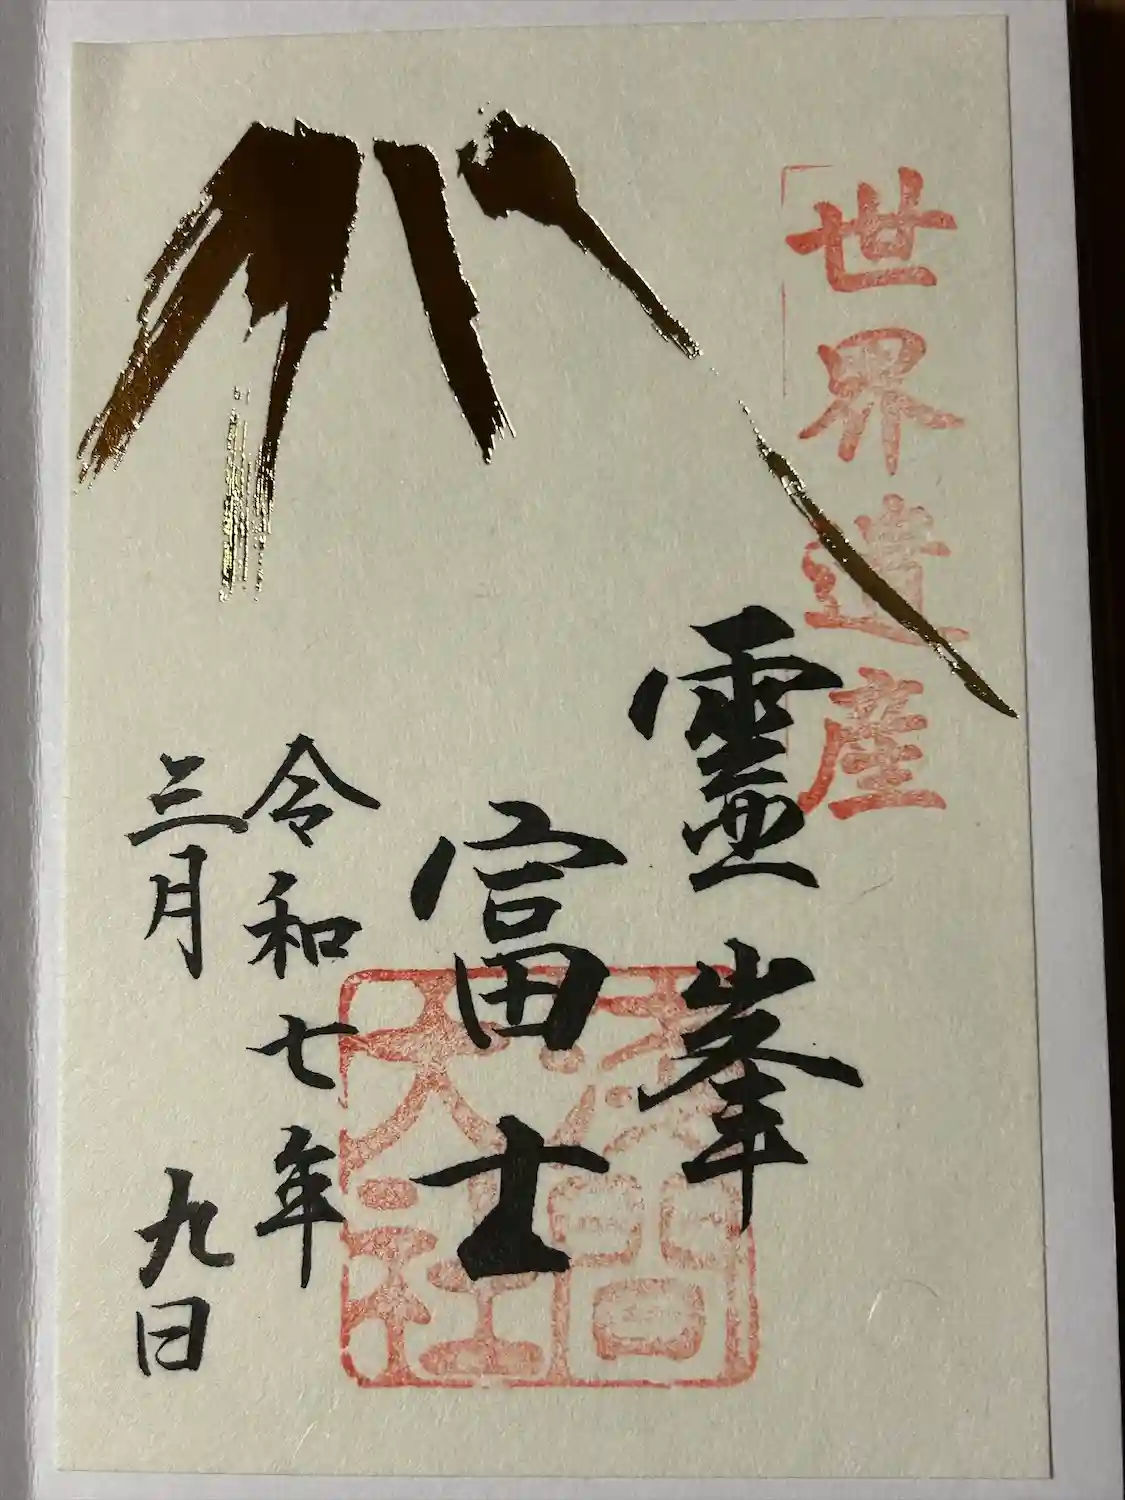 世界遺産
霊峯
富士
令和七年
三月九日
浅間大社